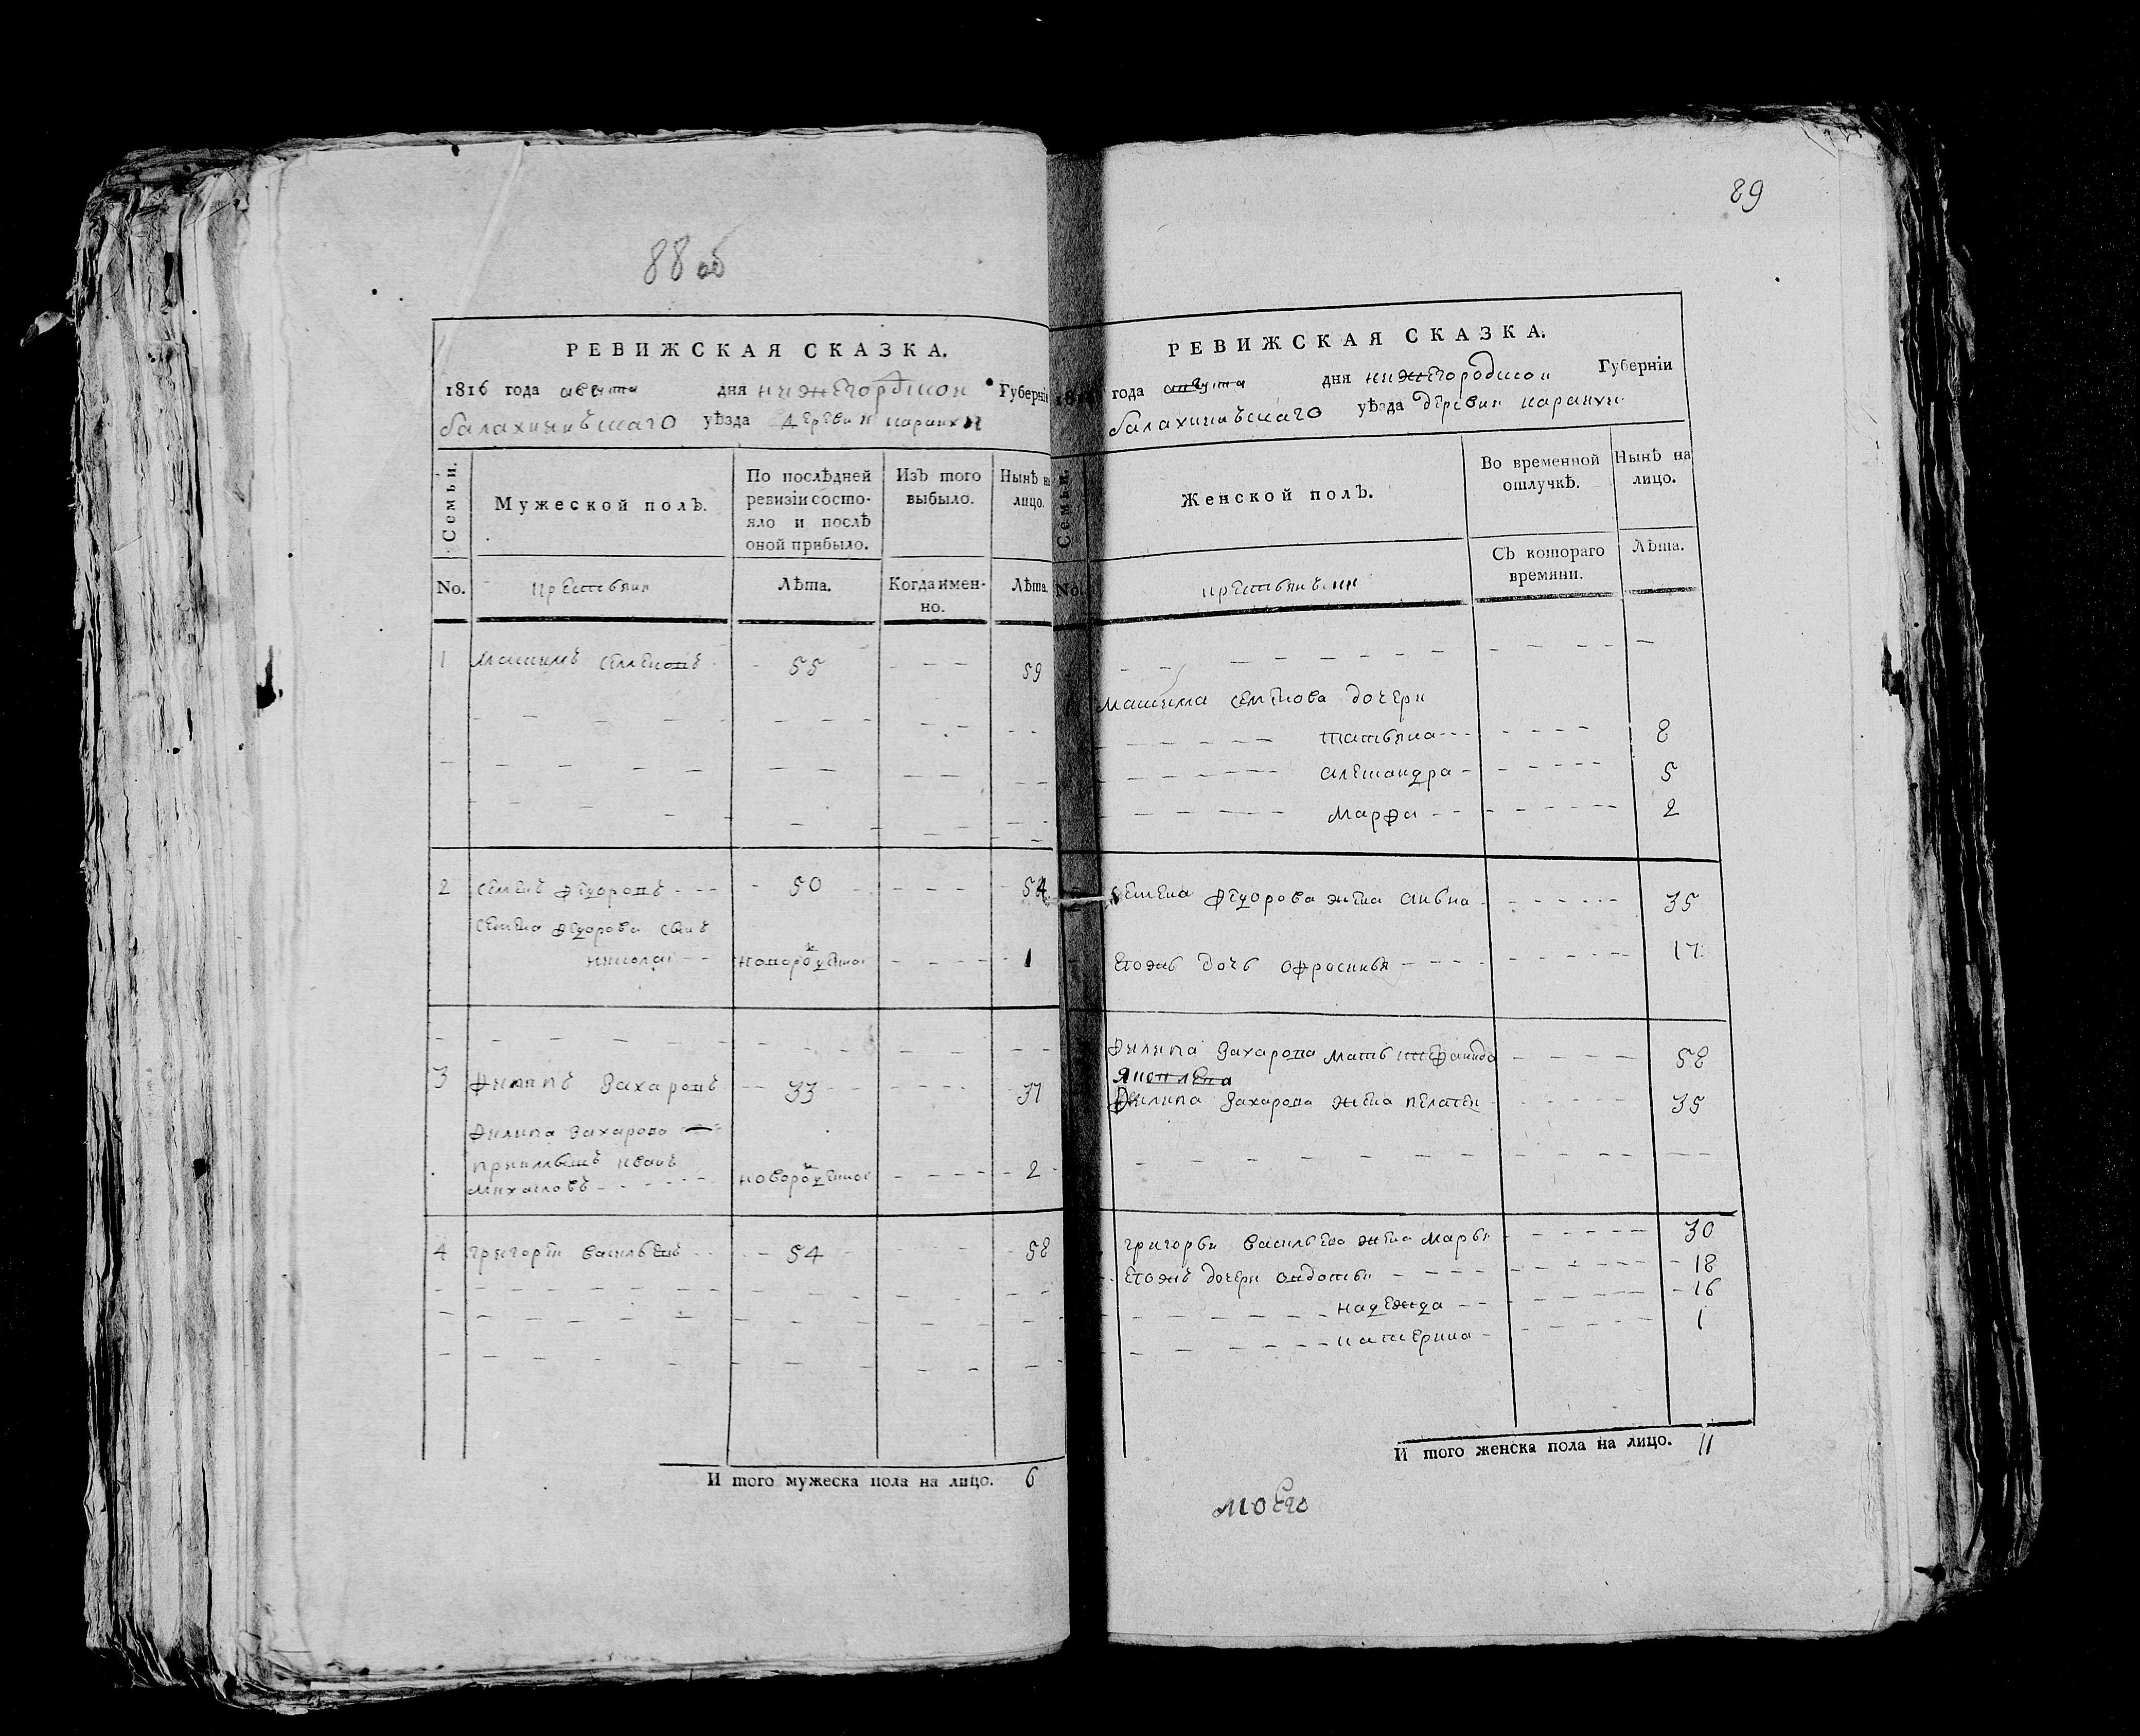 88 об
РЕВИЖСКАЯ СКАЗКА.
1816 года августа дня нижегородской Губерніи
балахнинъскаго уѣзда деревни
Семьи.
Мужеской полъ.
По послѣдней ревизіи состояло и послѣ оной прибыло.
Изъ того выбыло.
Нынѣ на лицо.
No. крестьяня Лѣта. Когда именно. Лѣта.
1 Максимъ Семеновъ 55 59
2 Семенъ Федоровъ 50 54
Семена Федорова сынъ
николаі новорожденной 1
3 Филипъ Захаровъ 33 37
Филипа Захарова
приимышъ иванъ
михаиловъ новорожденной 2
4 григореи васильевъ 54 58
И того мужеска пола на лицо. 6
89
РЕВИЖСКАЯ СКАЗКА.
1816 года августа дня нижегородской Губерніи
балахнинъскаго уѣзда деревни
Семьи.
Женской полъ.
Во временной отлучкѣ.
Нынѣ на лицо.
No. крестьянъки Съ котораго времяни. Лѣта.
Максима семенова дочери
татьяна 8
александра 5
марфа 2
семена Федорова жена анна 35
евожъ дочь офросинья 17
Филипа Захарова мать 58
Филипа Захарова жена пелагея 35
григорья васильева жена марья 30
евожъ дочери овдотья 18
надежда 16
катерина 1
И того женска пола на лицо. 11
моего